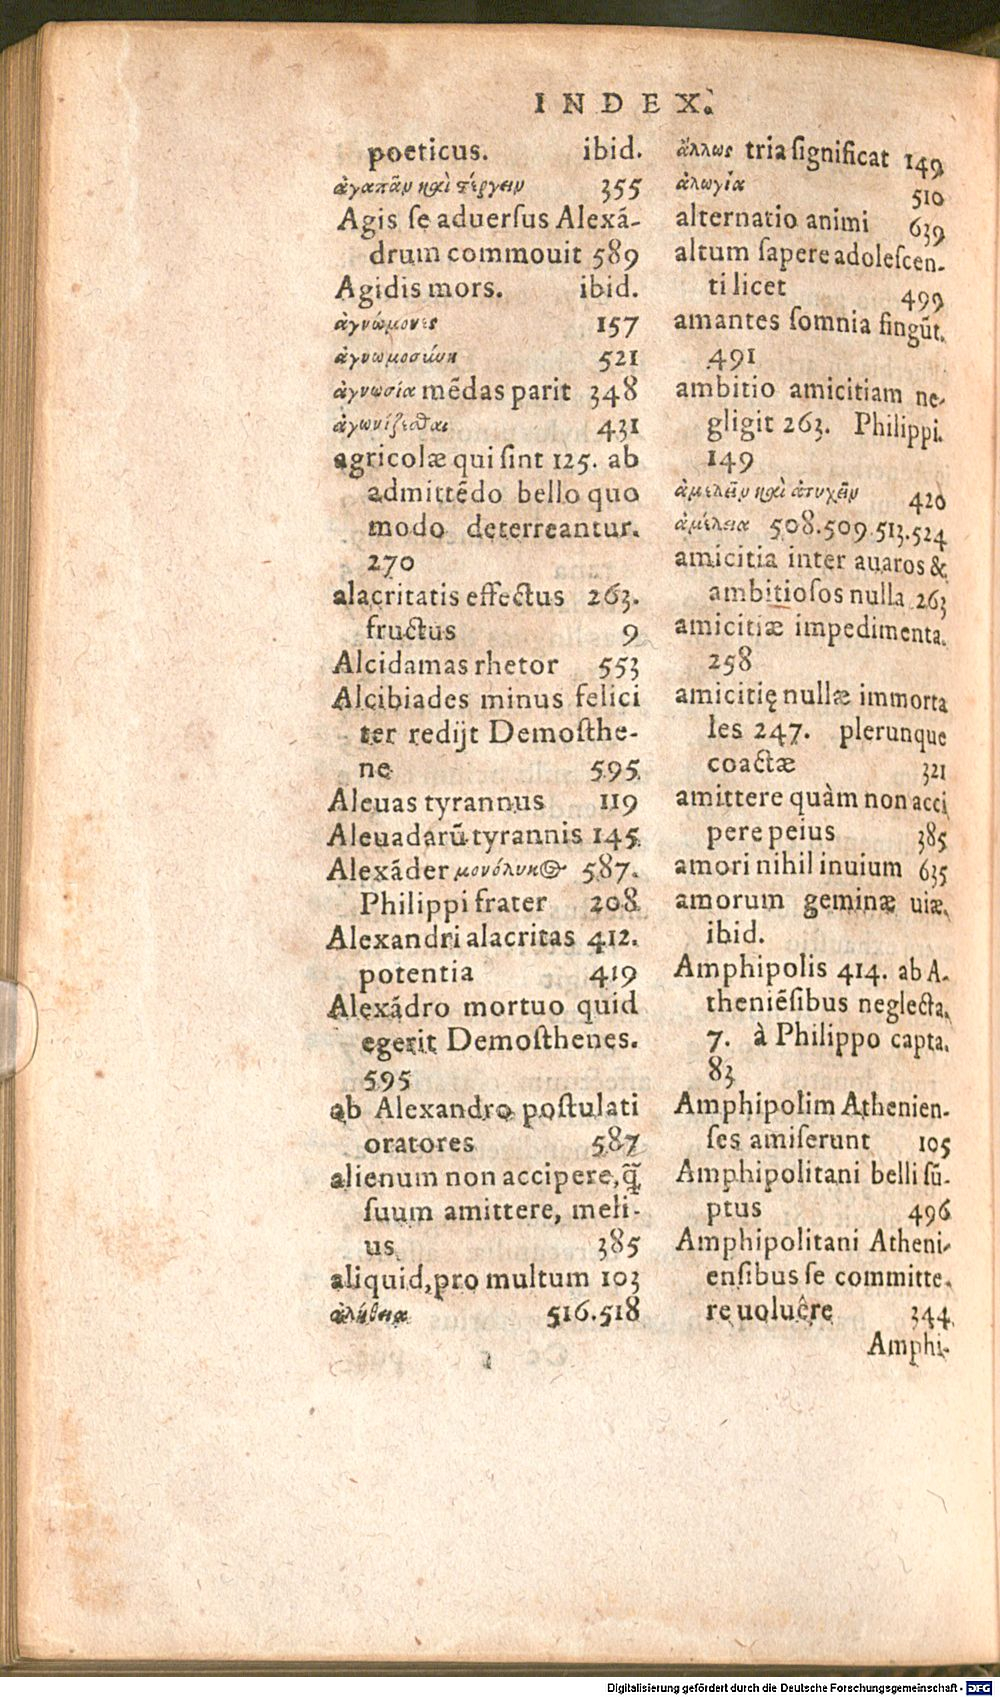 INDEX.
poeticus. ibid.
ἀγαπᾶν καὶ στέργειν 355
Agis ſe aduerſus Alexã-
drum commouit 589
Agidis mors. ibid.
ἀγνώμονες 157
ἀγνωμοσύνη 521
ἀγνωσία mẽdas parit 348
ἀγωνίζεσθαι 431
agricolæ qui ſint 125. ab
admittẽdo bello quo
modo deterreantur.
270
alacritatis effectus 263.
fructus 9
Alcidamas rhetor 553
Alcibiades minus felici
ter redijt Demoſthe-
ne 595
Aleuas tyrannus 119
Aleuadarũ tyrannis 145
Alexãder μονόλυκος 587.
Philippi frater 208
Alexandri alacritas 412.
potentia 419
Alexãdro mortuo quid
egerit Demoſthenes.
595
ab Alexandro poſtulati
oratores 587
alienum non accipere, q̃
ſuum amittere, meli-
us 385
aliquid, pro multum 103
ἀλήθεια 516.518
ἄλλως tria ſignificat 149
ἀλωγία 510
alternatio animi 639
altum ſapere adoleſcen-
ti licet 499
amantes ſomnia fingũt.
491
ambitio amicitiam ne-
gligit 263. Philippi.
149
ἀμελεῖν καὶ ἀτυχεῖν 420
ἀμέλεια 508.509.513.524
amicitia inter auaros &
ambitioſos nulla 263
amicitiæ impedimenta.
258
amicitię nullæ immorta
les 247. plerunque
coactæ 321
amittere quàm non acci
pere peius 385
amori nihil inuium 635
amorum geminæ uiæ.
ibid.
Amphipolis 414. ab A-
theniẽſibus neglecta.
7. à Philippo capta.
83
Amphipolim Athenien-
ſes amiſerunt 105
Amphipolitani belli ſũ-
ptus 496
Amphipolitani Atheni-
enſibus ſe committe-
re uoluêre 344
Amphi-
Digitalisierung gefördert durch die Deutsche Forschungsgemeinschaft - DFG